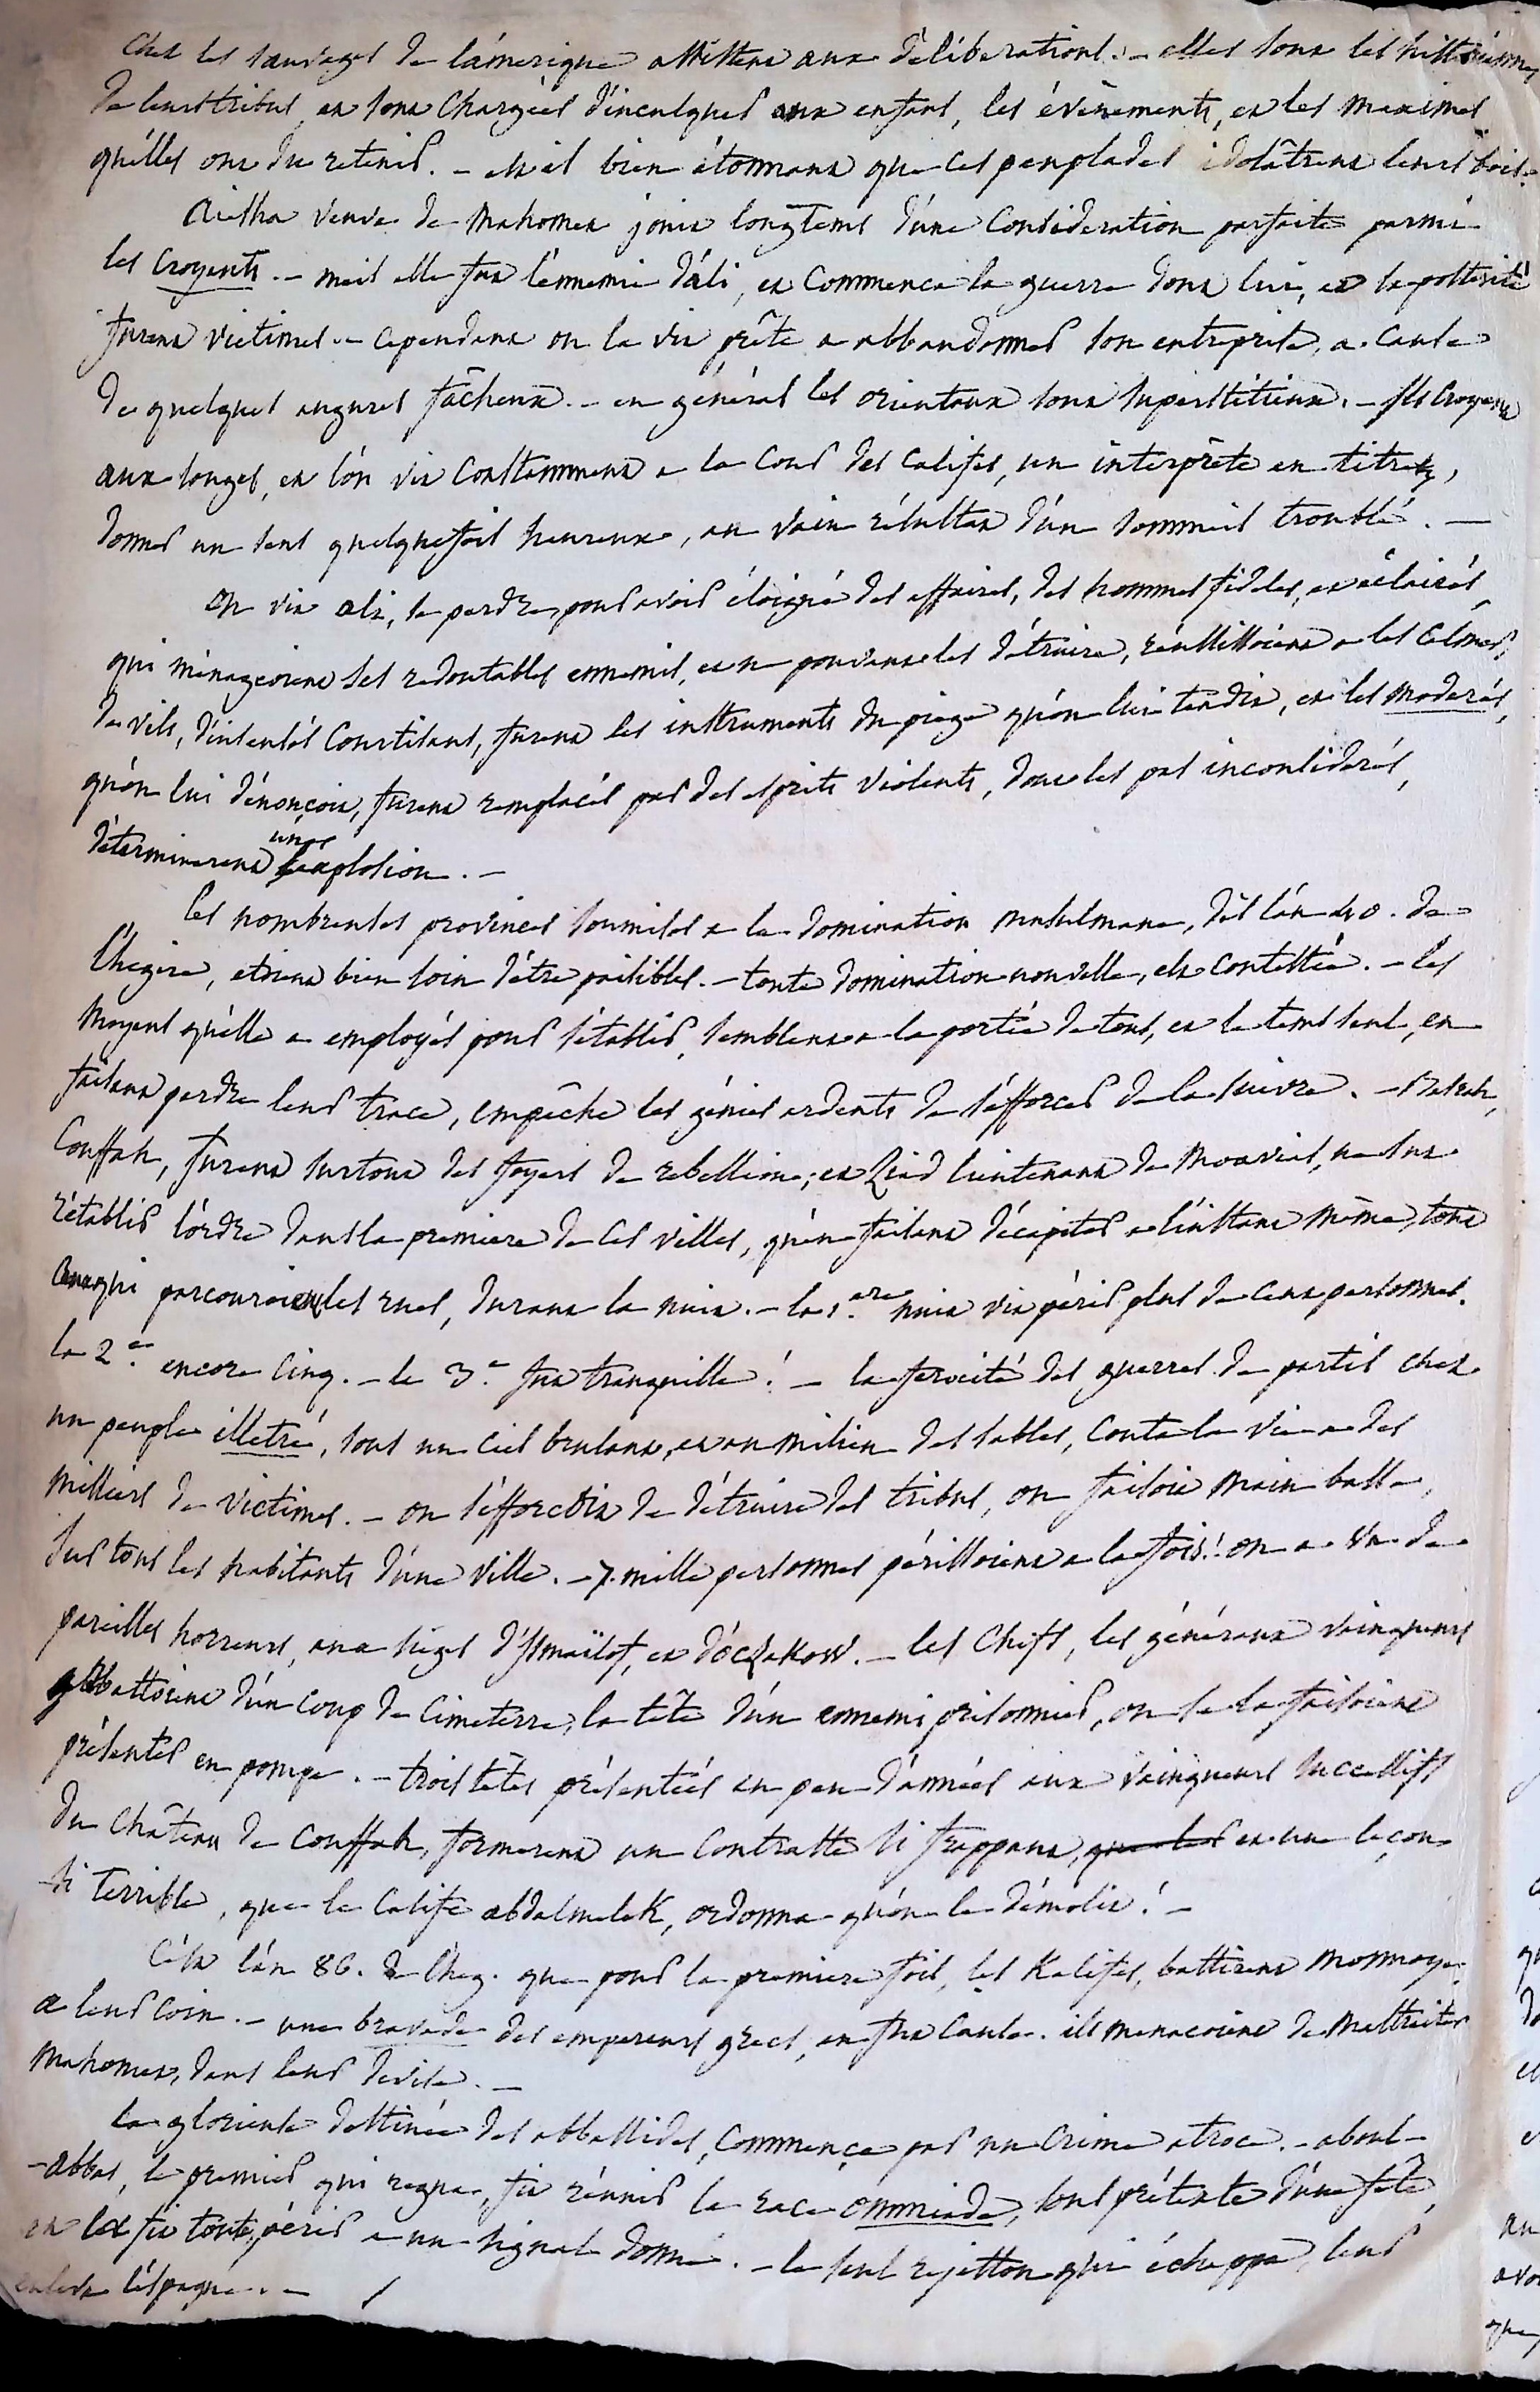 Chez les sauvages de l'amerique assistent aux déliberations. - elles sont les historiennes
de leurs tribus, et sont chargées d'inculquer aux enfans, les évènements, et les maximes
qu'elles ont du retenir. - est il bien étonnant que ces peuplades idolâtrent leurs bois.
Aiesha veuve de Mahomet jouit longtems d'une consideration parfaite parmi
les croyents. - mais elle fut l'ennemie d'ali, et commença la guerre dont lui, et sa postérité
furent victimes. - cependant on la vit prête a abbandonner son entreprise, a cause
de quelques augures fâcheux. - en général les orientaux sont superstitieux. - ils croyent
aux songes, et l'on vit constamment a la cour des califes, un interprête en titre,
donner un sens quelquefois heureux, au vain résultat d'un sommeil troublé. -
On vit ali, se perdre pour avoir éloigné des affaires, des hommes fideles, et éclairés,
qui ménageoient ses redoutables ennemis, et ne pouvant les détruire, réussissoient a les calmer,
de vils, d'insensés courtisans, furent les instruments du piege qu'on lui tendit, et les moderés,
qu'on lui dénonçoit, furent remplacés par des esprits violents, dont les pas inconsiderés,
déterminerent une explosion. -
Les nombreuses provinces soumises a la domination musulmane, dès l'an 40. de
l'hégire, etoient bien loin d'être paisibles. - toute domination nouvelle, est contestée. - les
moyens qu'elle a employés pour s'établir, semblent a la portée de tous, et le tems seul, en
faisant perdre leur trace, empêche les génies ardents de s'éfforcer de la suivre. - Basrah,
Couffah, furent surtout des foyers de rebellion; et Ziad lieutenant de Moavias, ne sut
rétablir l'ordre dans la premiere de ces villes, qu'en faisant décapiter a l'instant même, tous
ceux qui parcouroient les rues, durant la nuit. - la 1.ere nuit vit périr plus de cent personnes.
la 2.e encore cinq. - la 3.e fut tranquille! - la ferocité des guerres de partis chez
un peuple illetré, sous un ciel brulant, et au milieu des sables, couta la vie a des
milliers de victimes. - on s'éfforçoit de détruire des tribus, on faisoit main basse,
sur tous les habitants d'une ville. - 7. mille personnes périssoient a la fois! on a vu de
pareilles horreurs, aux sièges d'Ismaïlof, et d'oczakow. - les chefs, les généraux vainqueurs
abbattoient d'un coup de cimeterre, la tête d'un ennemi prisonnier, ou se la faisoient
présenter en pompe. - trois têtes présentées en peu d'années aux vainqueurs successifs
du château de Couffah, formerent un contraste si frappant, et une leçon
si terrible, que le calife abdalmelek, ordonna qu'on le démolit! -
C'est l'an 86. de l'heg. que pour la premiere fois, les Kalifes, battirent monnoye
a leur coin. - une bravade des empereurs grecs, en fut cause. ils menaçoient de maltraiter
Mahomet, dans leur devise. -
La glorieuse destinée des abbassides, commença par un crime atroce. - aboul-
-abbas, le premier qui regna, fit réunir la race ommiade, sous prétexte d'une fête,
et les fit toute périr a un signal donné. - le seul rejetton qui échappa, leur
enleva l'éspagne. -